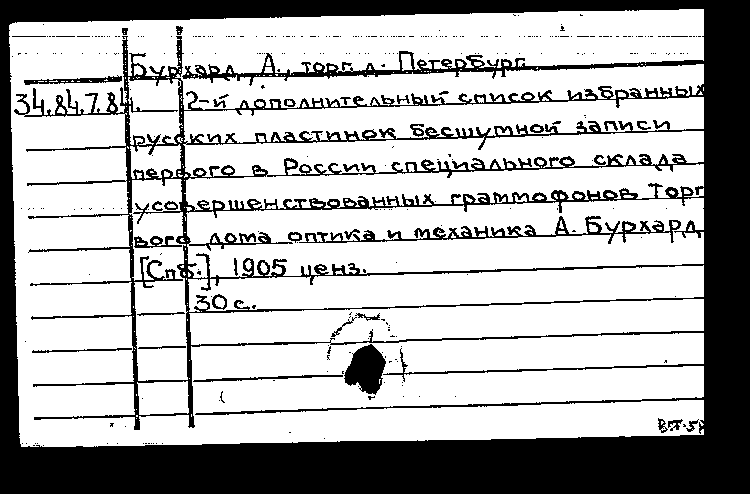 Бурхард, А., торг. д. Петербург.
34.84.7.84. 2-й дополнительный список избранных
русских пластинок бесшумной записи
первого в России специального склада
усовершенствованных граммофонов Торг
вого дома оптика и механика А. Бурхард
[Спб.], 1905 ценз.
30 с.